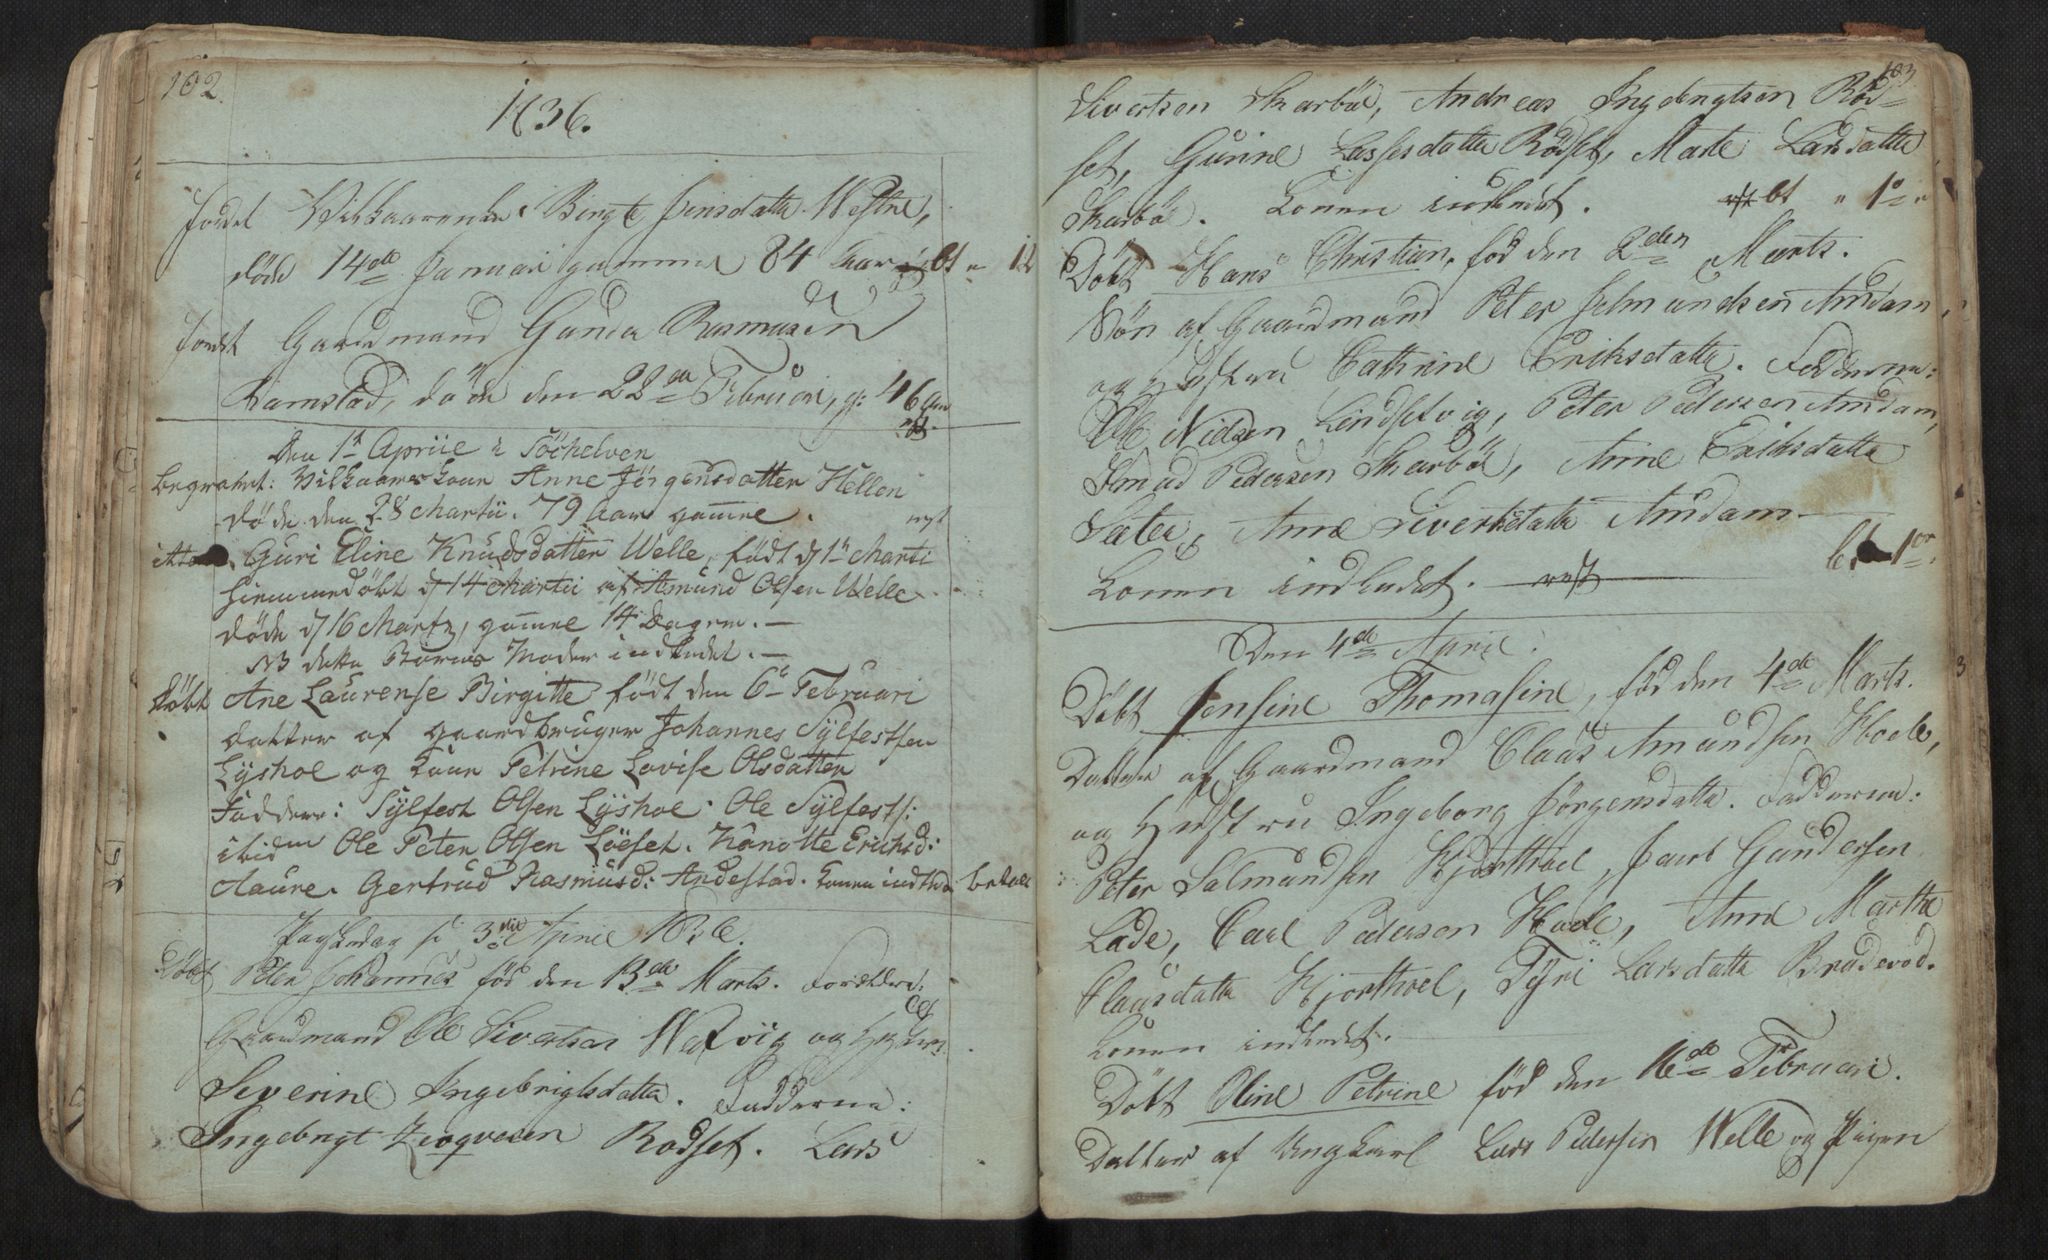 102.
1836.
Jordet Vilkaarenke Birgte Jensdatter Westre,
døde 14de Januari gammel 84 Aar bt " 12
Jordet Gaardmand Gunder Rasmusen
Ramstad, døde den 22de Februari, g: 46 Aar
rest.
Den 1t Apriil i Söchelven
begravet: Vilkaarskone Anne Jörgensdatter Hellen
døde den 28 Martii. 79 Aar gam̅el. rest
Guri Eline Knudsdatter Welle, født d 1t Marti
hiemmedöbt d 14 Martii af Asmund Olsen Welle
døde d 16 Martz, gam̅el 14 Dagen. —
NB dette Barns Moder indledet. —
Döbt Ane Laurense Birgitte født den 6te Februari
datter af gaardbruger Johannes Sylfestsen
Lyshoe og kone Petrine Lovise Olsdatter
Faddere: Sylfest Olsen Lyshoe. Ole Sylfests:
ibidm Ole Peter Olsen Löeset. Hanotte Erichsd:
Aaure. Gertrud Rasmusd: Andestad. konen indled: betalt
Paaskedag d 3die April 1836.
Döbt Peter Johannes fød den 13de Marts. Forældre:
Gaardmand Ole Sivertsen Wefvig og Hustru
Severine Ingebrigtsdatter. Fadderne:
Ingebrigt Rodset. Lars
103
Sivertsen Skarbö, Andreas Ingebrigtsen Rød-
set, Gunne Lassesdatter Rødset, Marte Larsdatter
Skarbö. Konen indledet. bt " 1 "
Döbt Hans Christian, fød den 2den Marts.
Søn af Gaardmand Peter Salmundsen Amdam,
og Hustru Cathrine Eriksdatter. Fadderne:
Ole Nielsen Lindsetvig, Peter Pedersen Amdam,
Knud Pedersen Skarbö, Anne Eriksdatter
Sæter, Anne Sivertsdatter Amdam
Konen indledet. rest bt 1 or.
Den 4de April.
Döbt Jensine Thomasine, fød den 4de Marts.
Datter af Gaardmand Claus Amundsen Hoele,
og Hustru Ingeborg Jörgensdatter. Fadderne:
Peter Salmundsen Hjorthoel, Jacob Gundersen
Lade, Carl Pedersen Hoele, Anne Marthe
Clausdatter Hjorthoel, Tyri Larsdatter Brudevod.
Konen indledet.
Döbt Oline Petrine fød den 16de Februari.
Datter af Ungkarl Lars Pedersen Welle og Pigen